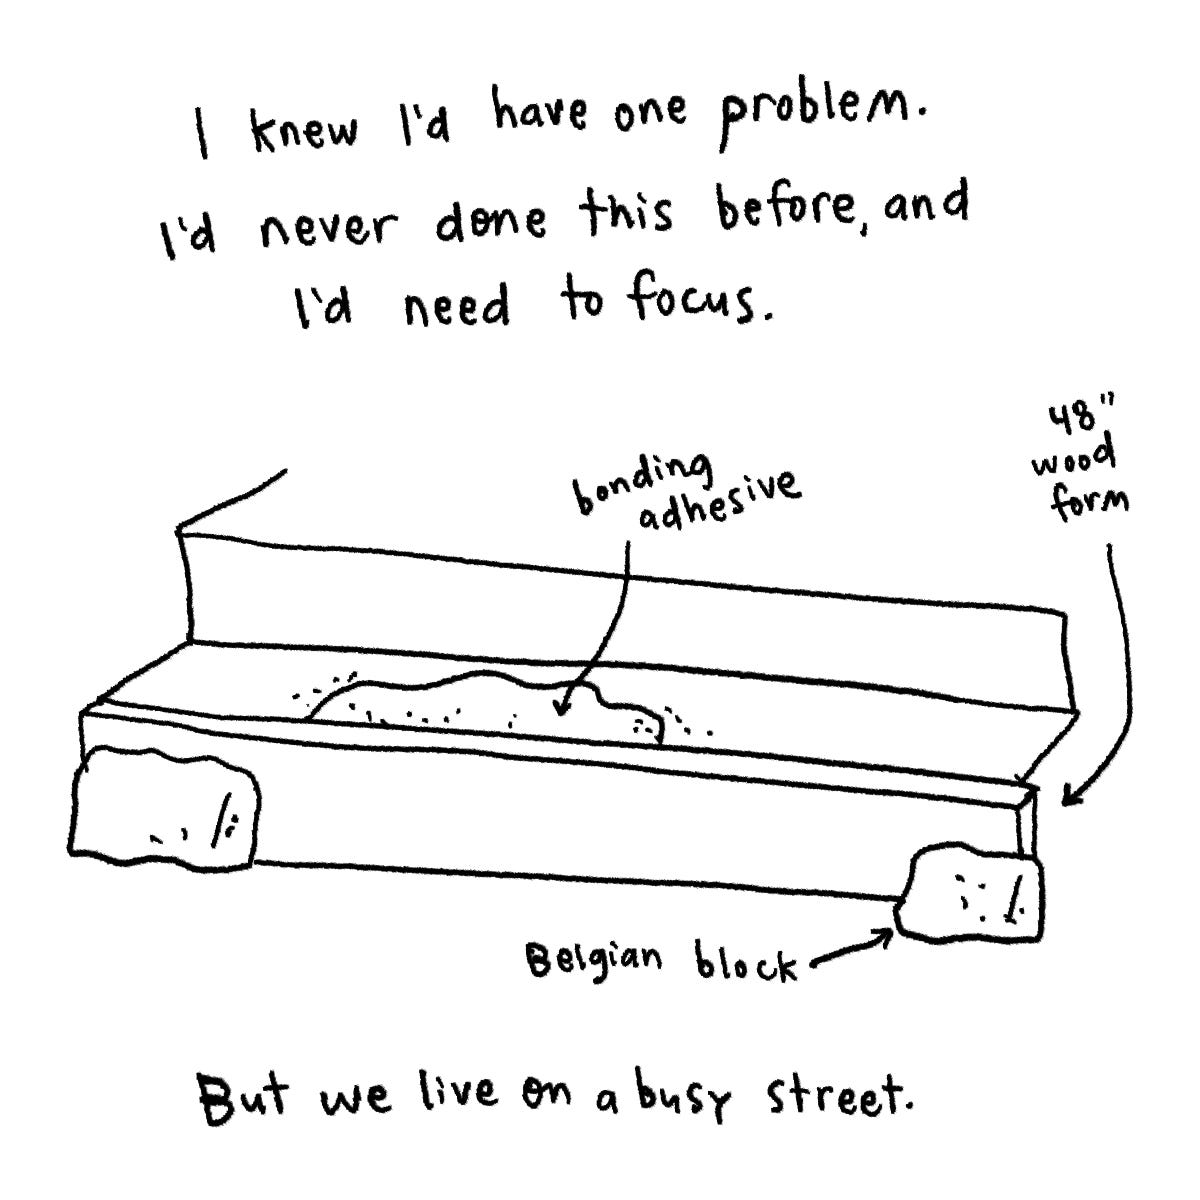 I knew I'd have one problem.
I'd never done this before, and
I'd need to focus.
48"
wood
form
bonding
adhesive
Belgian block
But we live on a busy street.